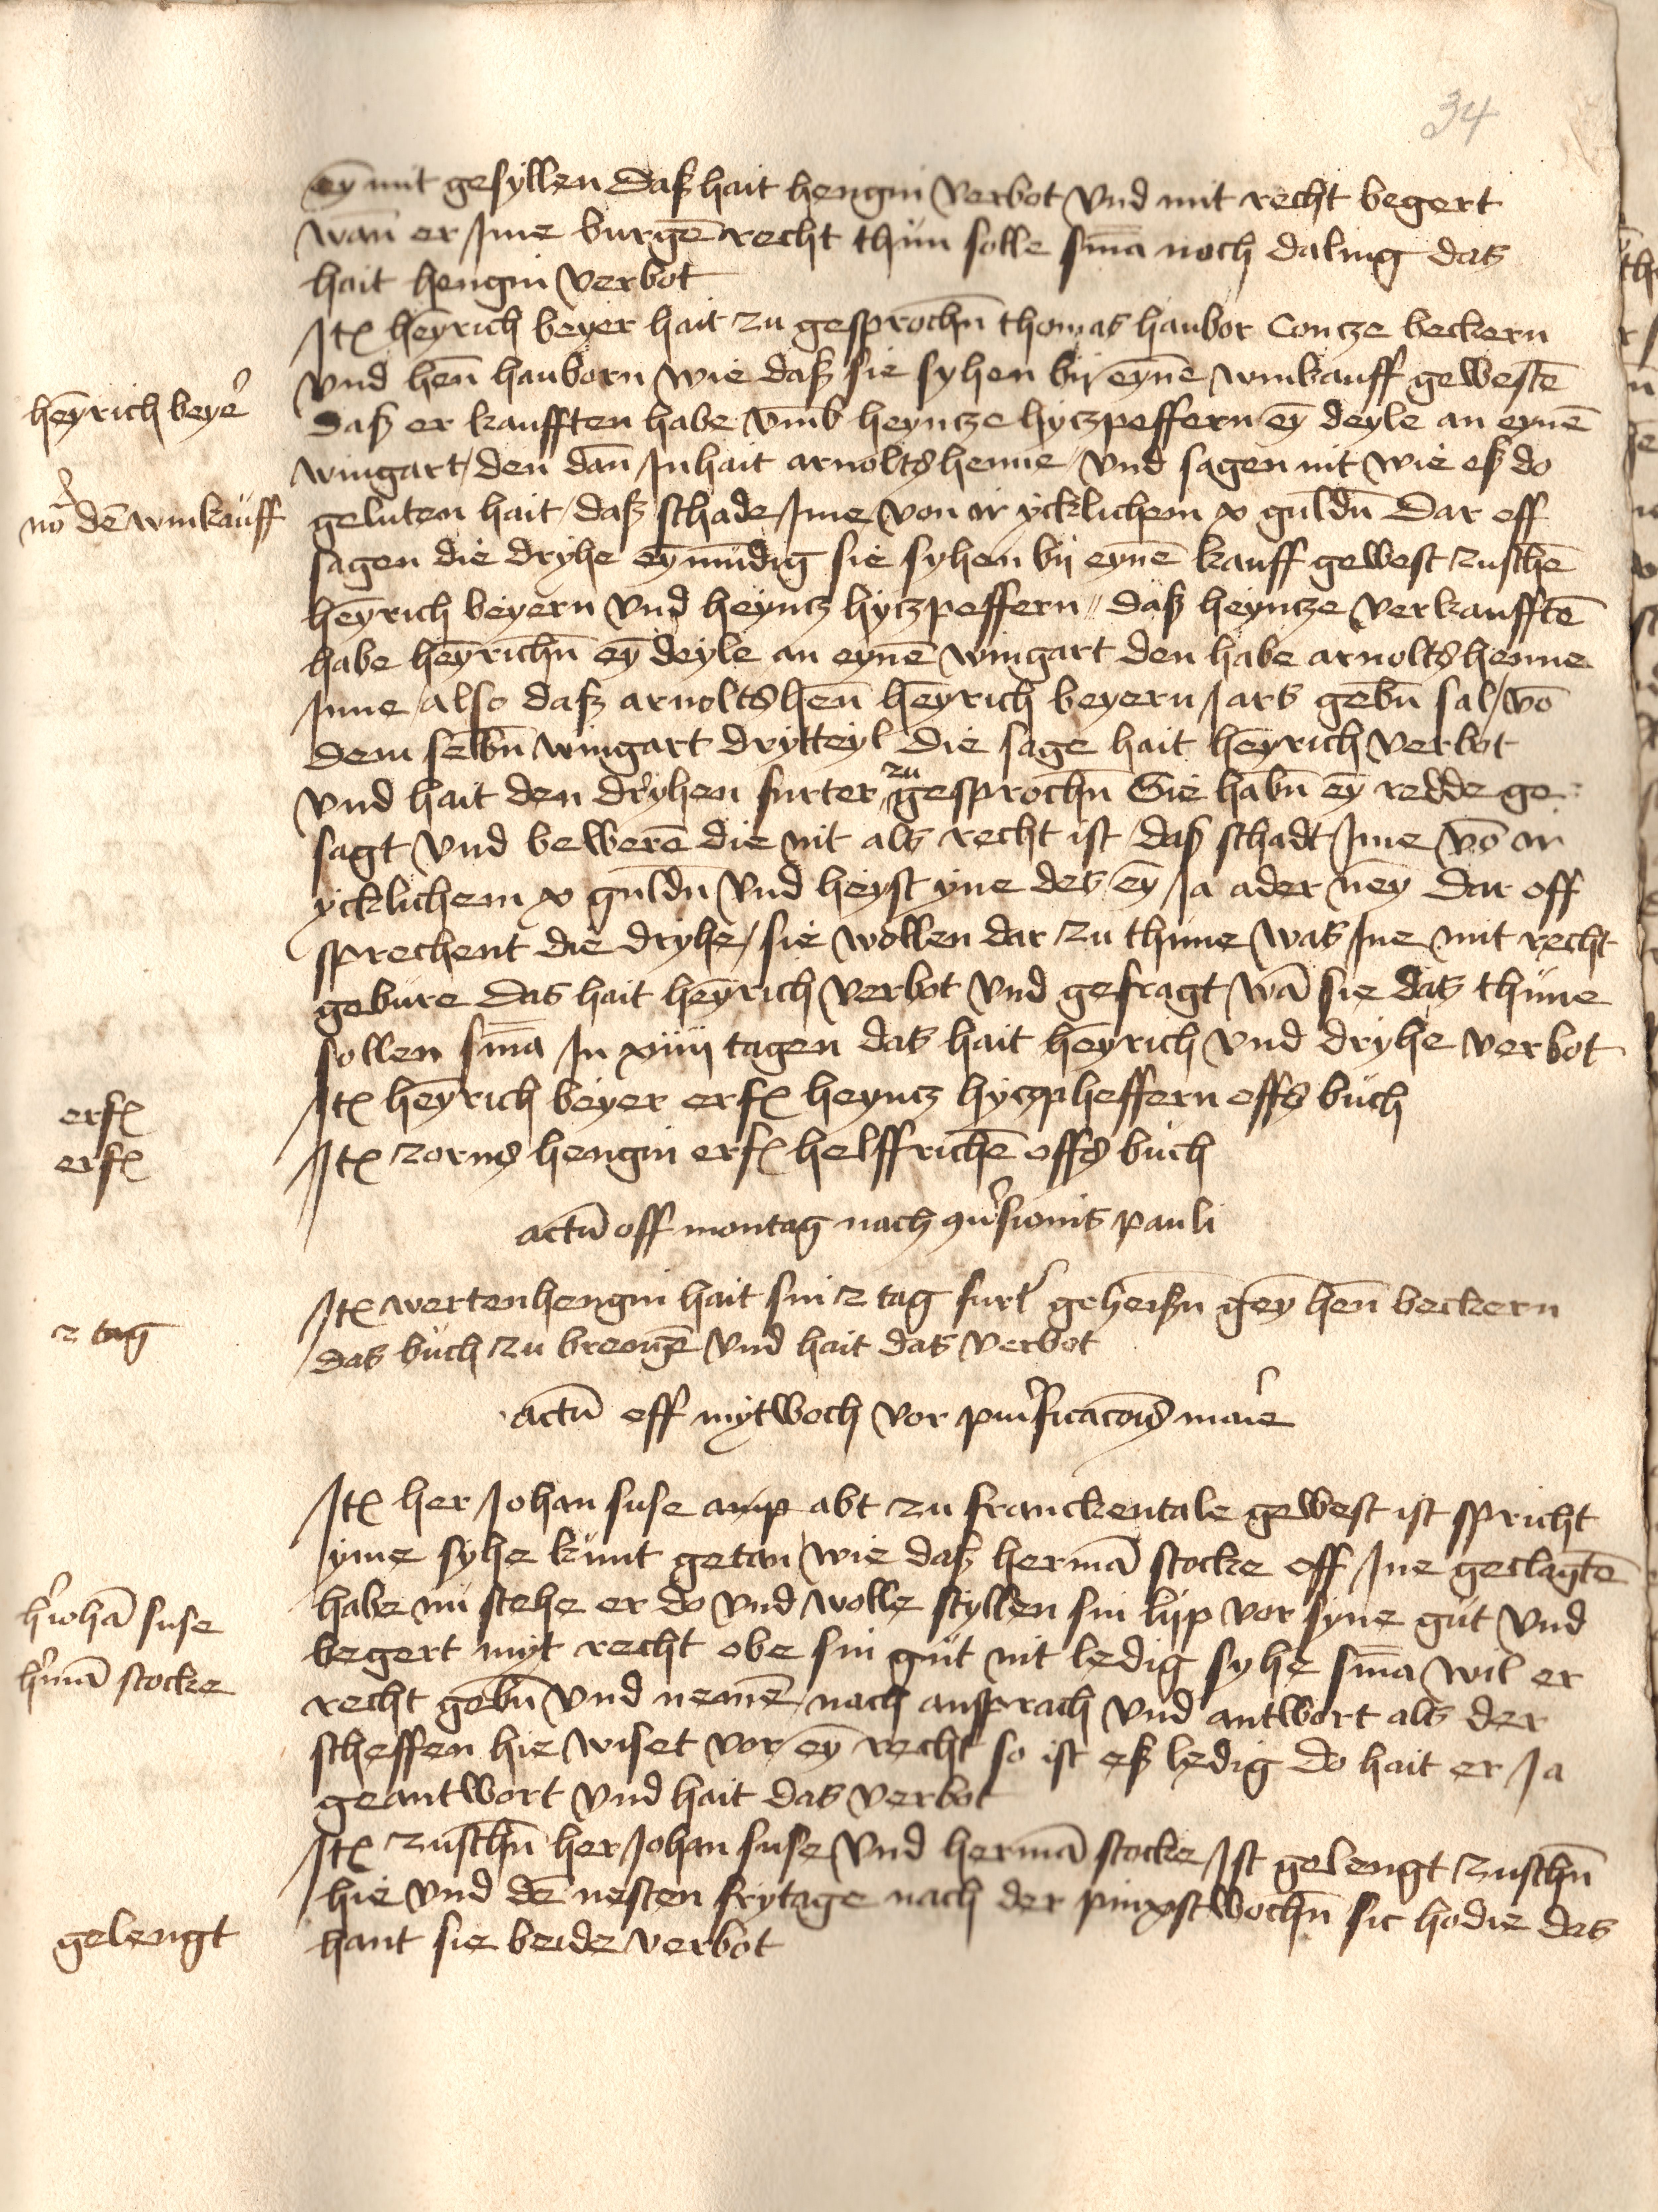 34
ey mit gesyllen daß hait hengin verbot vnd mit recht begert
wān er Jme burgē recht thün solle sm̄a noch daling das
hait hengin verbot
Itꝫ heyrich beyer hait zu gesprochn̄ thomas haubor Concze beckern
vnd hen̄ hauborn wie daß sie syhen bij eynē winkauff gewestē
heyrich beyeʳ
daß er kaufften habe vmb heyncze hyczpeffern ey̅ deyle an eynē
wingart den dan̄ Jnhait arnolts henne vnd sagen nit wie eß do
no dē winkauff
geluten hait daß schade Jme von ir ycklichem x guldn̄ Dar off
sagen die dryhe ey̅mūdig sie syhen bij eynē kauff gewest zuschē
heyrich beyern vnd heyncz hyczpeffern daß heyncze verkaufftē
habe heyrichn̄ ey̅ deyle an eynē wingart den habe arnolts henne
Jnne also daß arnolts hen̄ heyrich beyern Jars gebn̄ sal vō
dem selbn̄ wingart drytteyl die sage hait heyrich verbot
vnd hait den dryhen furter zu gesprochn̄ Sie habn̄ ey̅ redde ge
sagt vnd bewerē die nit als recht ist daß schadt Jme vō ir
ycklichem x guldn̄ vnd heyst yne des ey̅ Ja ader ney̅ Dar off
sprechent die dryhe sie wollen dar zu thüne was Jne mit recht
gebure das hait heyrich verbot vnd gefragt wā sie das thüne
sollen sm̄a Jn xiiij tagen das hait heyrich vnd dryhe verbot
erfꝫ
Itꝫ heyrich beyer erfꝫ heyncz hyczpheffern offs büch
erfꝫ
Itꝫ zorns hengin erfꝫ helffrichē offs büch
actū off montag nach ꝯuʳsionis pauli
Itꝫ wertenhengin hait sin 2 tag furtʳ geheißn̄ gey̅ hen̄ beckern
2 tag
das büch zu brengē vnd hait das verbot
actū off mytwoch vor puʳificacōis marie
Itꝫ her Johan suse abt zu franckentale gewest ist spricht
yme syhe künt getan wie daß hermā stocke off Jne geclagtē
hʳ iohā suse
habe nü stehe er do vnd wolle styllen sin lijp vor syne güt vnd
hʳmā stocke
begert myt recht obe sin güt nit ledig syhe sm̄a wil er
recht gebn̄ vnd nemē nach ansprach vnd antwort als der
scheffen hie wiset vor ey̅ recht so ist eß ledig do hait er Ja
geantwort vnd hait das verbot
Itꝫ zuschn̄ her Johan suse vnd hermā stocke Ist gelengt zuschn̄
hie vnd dē nesten frytage nach der pinxstwochn̄ sic hodie das
gelengt
hant sie beide verbot